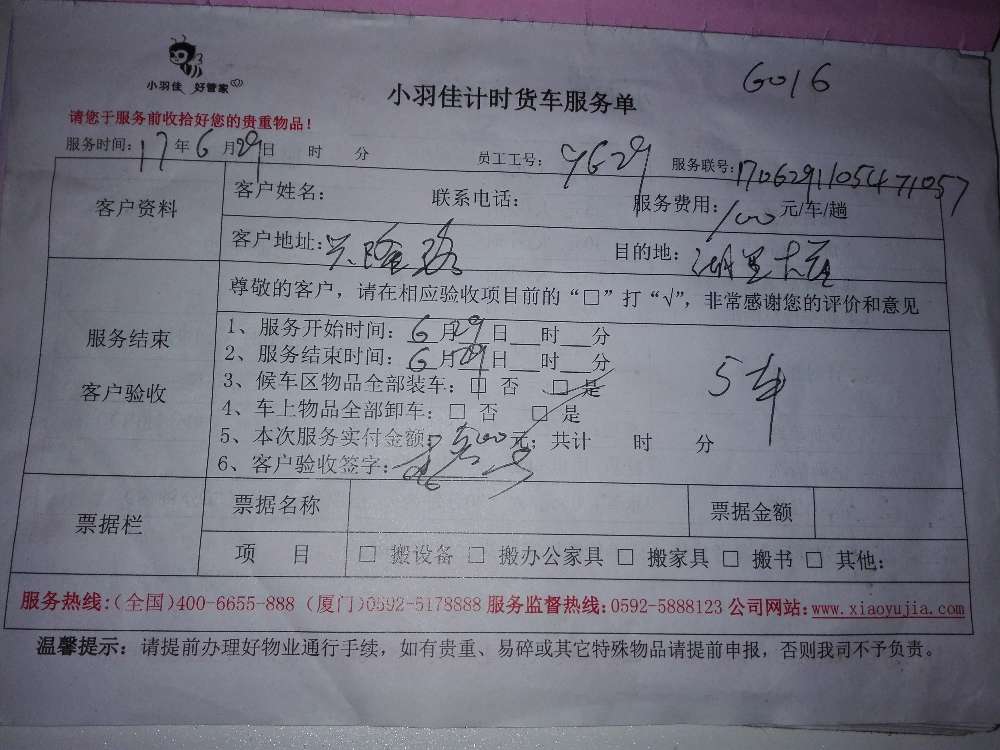 小羽佳 好管家
小羽佳计时货车服务单
6016
请您于服务前收拾好您的贵重物品！
服务时间：17年6月29日 时 分 员工工号： 服务联号：1706291105471057
客户资料
客户姓名： 联系电话： 服务费用：100元/车/趟
客户地址：兴隆路 目的地：湖里大道
服务结束
客户验收
尊敬的客户，请在相应验收项目前的“□”打“√”，非常感谢您的评价和意见
1、服务开始时间：6月29日___时___分
2、服务结束时间：6月29日___时___分
5车
3、候车区物品全部装车：□ 否 □ 是
4、车上物品全部卸车：□ 否 □ 是
5、本次服务实付金额：500元；共计 时 分
6、客户验收签字：
票据栏
票据名称 票据金额
项 目 □ 搬设备 □ 搬办公家具 □ 搬家具 □ 搬书 □ 其他：
服务热线：（全国）400-6655-888（厦门）0592-5178888 服务监督热线：0592-5888123 公司网站：www.xiaoyujia.com
温馨提示：请提前办理好物业通行手续，如有贵重、易碎或其它特殊物品请提前申报，否则我司不予负责。